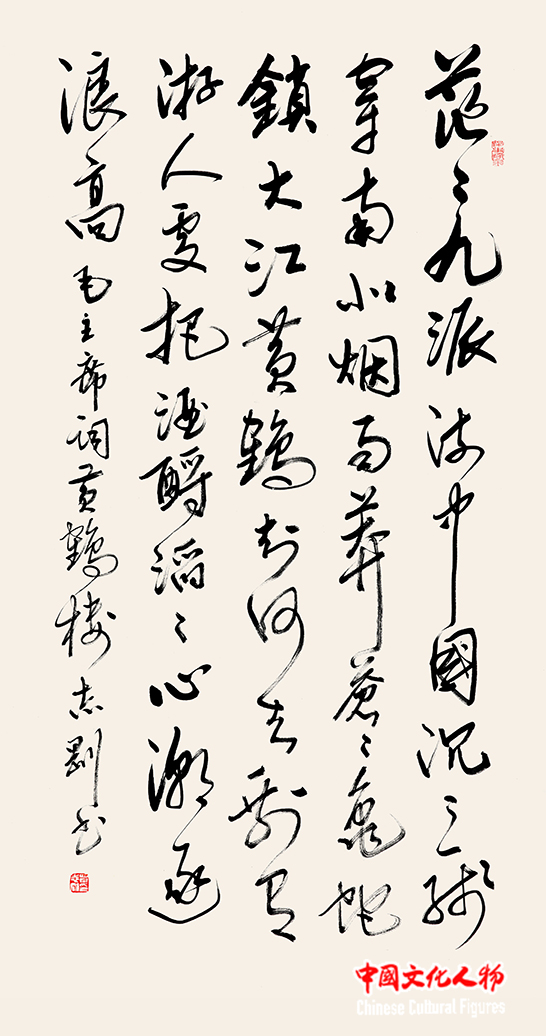 茫々九派流中國沉々一線
穿南北烟雨莽蒼々龜蛇
鎖大江黄鶴知何去剩有
游人處把酒酹滔々心潮逐
浪高 毛主席詞黄鶴楼 志剛书
中國文化人物
Chinese Cultural Figures